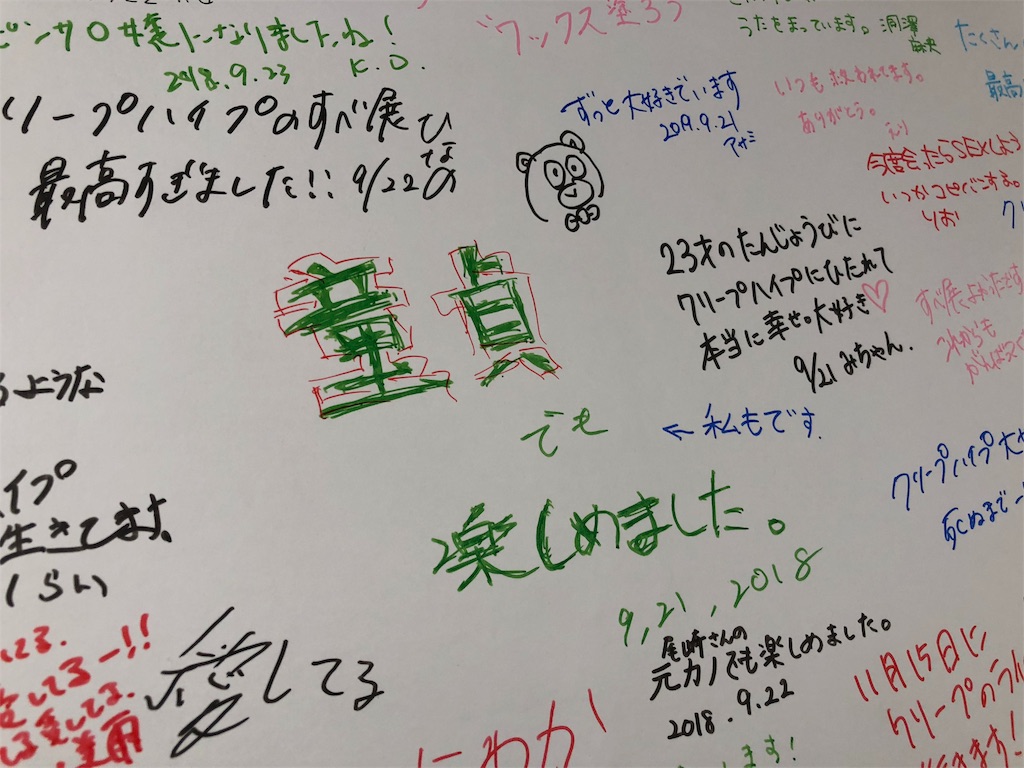 ピンサロ嬢になりましたね!
2018.9.23 K.O.
リープハイプのすべ展
最高すぎました!! 9/22
ひなの
"ワックス塗ろう
うたをまっています。
たくさん
最高
ずっと大好きでいます
2019.9.21
アサミ
いつも救われてます。
ありがとう。
今度会ったらSEXしよう
りお
童貞
でも
←私もです.
楽しめました。
9,21,2018
23才のたんじょうびに
クリープハイプにひたれて
本当に幸せ。大好き♡
9/21 みちゃん.
すべ展よかったです
これからも
がんばって
るような
イプ
生きてます
くらい
してる.
愛してるー!!
愛してる
尾崎さんの
元カノでも楽しめました。
2018.9.22
クリープハイプ大
死ぬまで
にわか
11月15日に
クリープのライ
行きます!
ます!